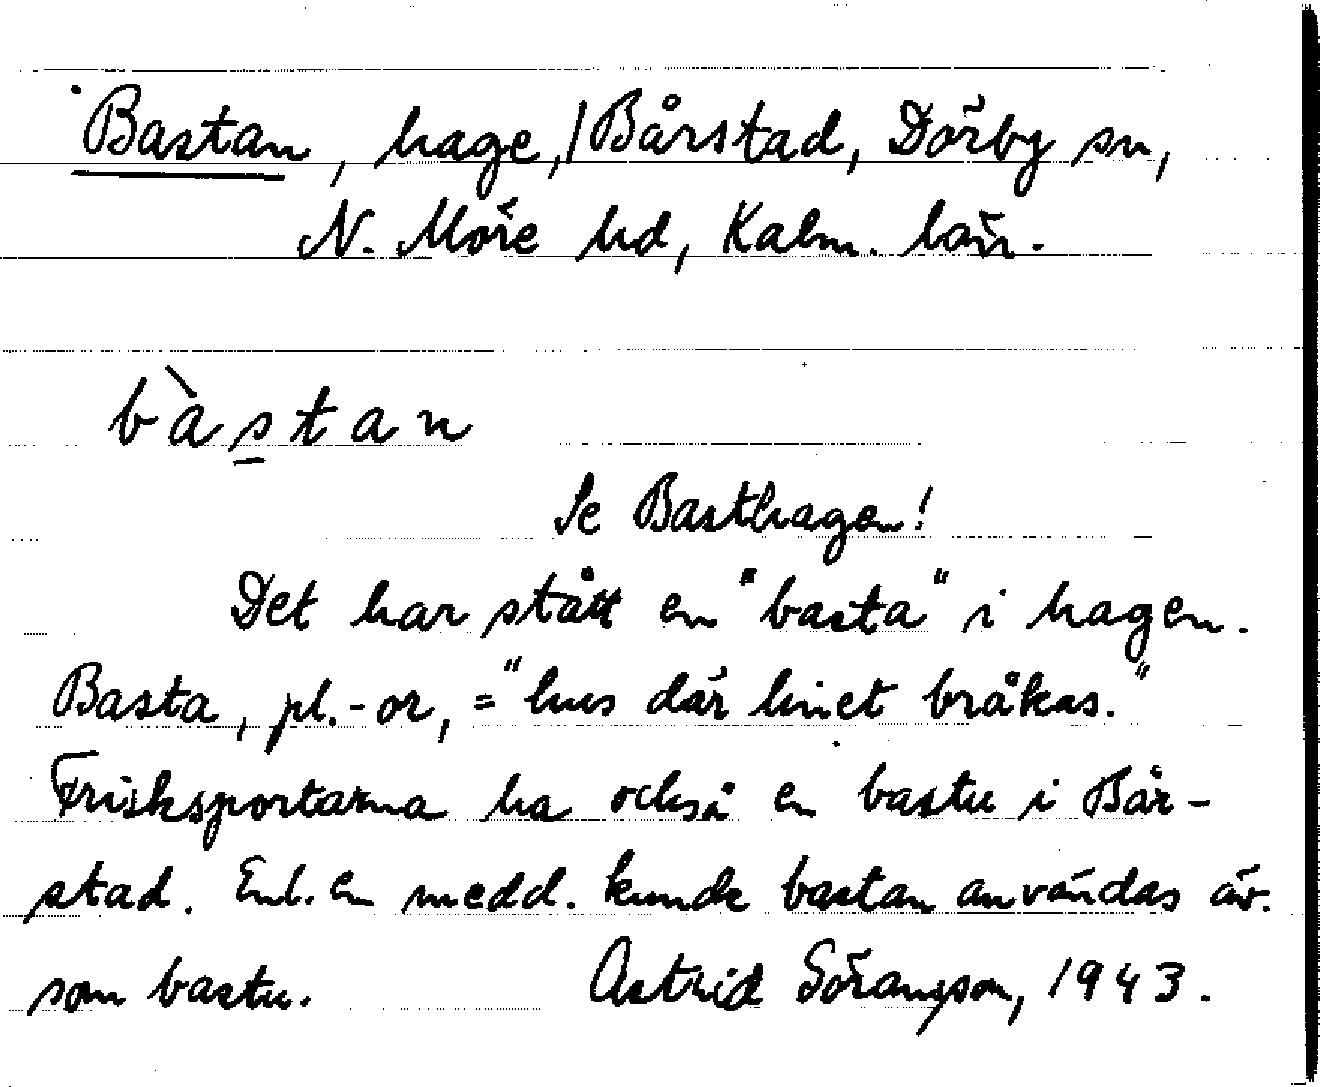 Bastan, hage, / Bårstad, Dörby sn,
N. Möre hd, Kalm. län.
bàstan
Se Basthagen!
Det har stått en "basta" i hagen.
Basta, pl. -or, = "hus där linet bråkas."
Frisksportarna ha också en bastu i Bår-
stad. Enl. en medd. kunde bastan användas äv.
som bastu. Astrid Göransson, 1943.